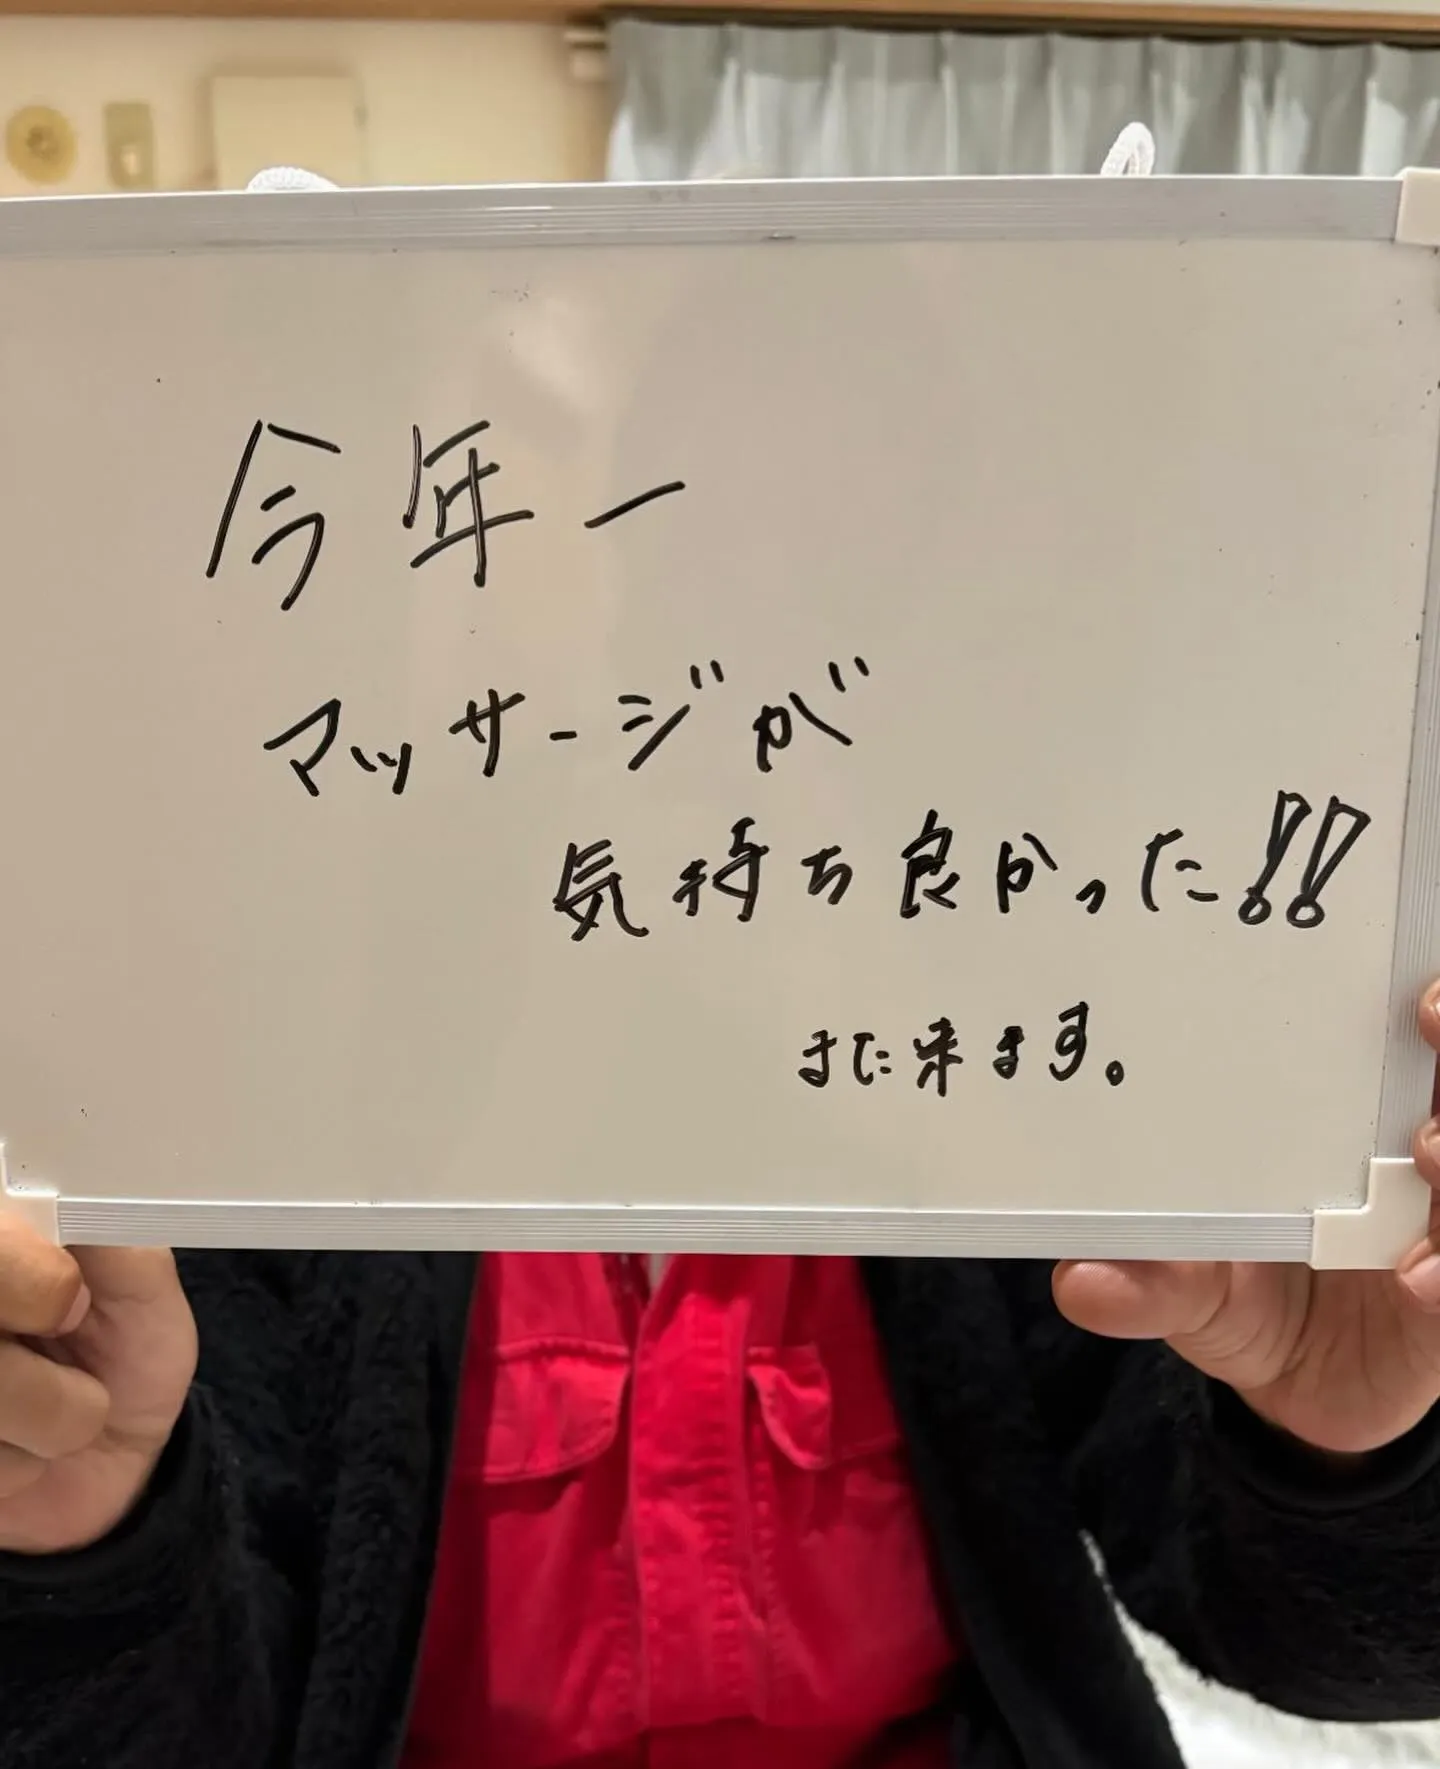 今年一
マッサージが
気持ち良かった!!
また来ます。